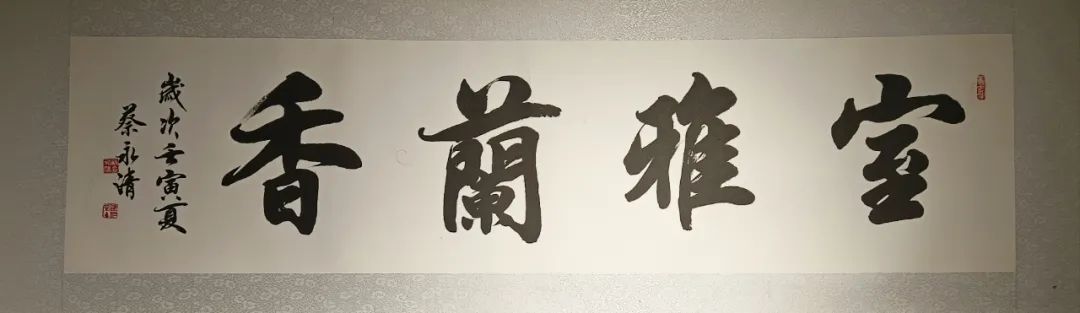 室雅蘭香
歲次壬寅夏
蔡永清